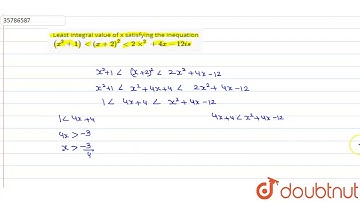 35786587
Least integral value of x satisfying the inequation
(x² + 1) < (x + 2)² < 2 x² + 4x − 12is
x²+1 < (x+2)² < 2x²+4x-12
x²+1 < x²+4x+4 < 2x²+4x-12
1 < 4x+4 < x²+4x-12
1 < 4x+4
4x+4 < x²+4x-12
4x > -3
x > -3/4
doubtnut